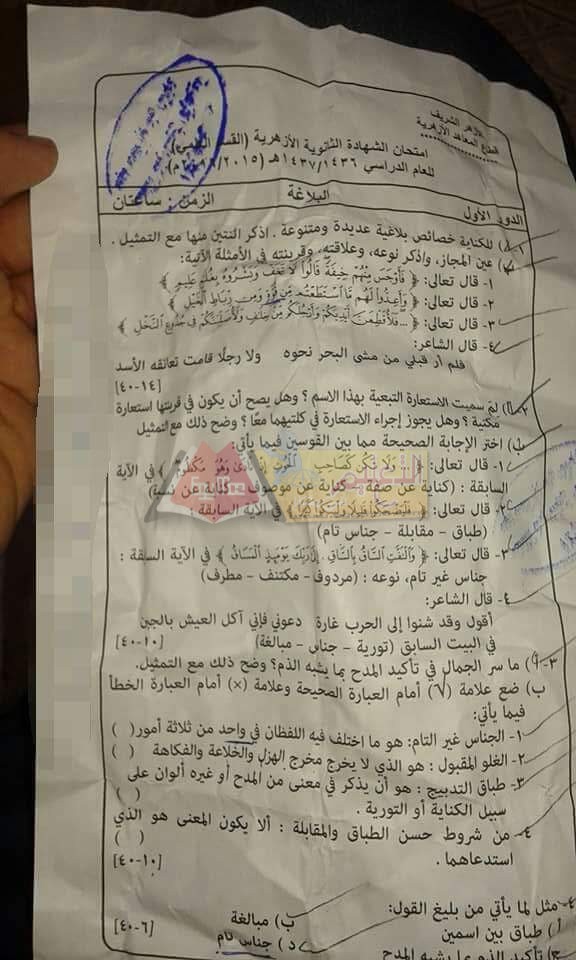 الأزهر الشريف
قطاع المعاهد الأزهرية
امتحان الشهادة الثانوية الأزهرية (القسم العلمي)
للعام الدراسي ١٤٣٧/١٤٣٦هـ (٢٠١٥/ ٢٠١٦م)
الدور الأول البلاغة الزمن : ساعتان
١- أ) للكناية خصائص بلاغية عديدة ومتنوعة . اذكر اثنتين منها مع التمثيل .
ب) عين المجاز، واذكر نوعه، وعلاقته، وقرينته في الأمثلة الآتية:
١- قال تعالى: ﴿ فَأَوْجَسَ مِنْهُمْ خِيفَةً قَالُوا لَا تَخَفْ وَبَشَّرُوهُ بِغُلَامٍ عَلِيمٍ ﴾
٢- قال تعالى: ﴿ وَأَعِدُّوا لَهُم مَّا اسْتَطَعْتُم مِّن قُوَّةٍ وَمِن رِّبَاطِ الْخَيْلِ ﴾
٣- قال تعالى: ﴿ ... فَلَأُقَطِّعَنَّ أَيْدِيَكُمْ وَأَرْجُلَكُم مِّنْ خِلَافٍ وَلَأُصَلِّبَنَّكُمْ فِي جُذُوعِ النَّخْلِ ﴾
٤- قال الشاعر:
فلم أر قبلي من مشى البحر نحوه ولا رجلًا قامت تعانقه الأسد
[١٤-٤٠]
٢- أ) لم سميت الاستعارة التبعية بهذا الاسم ؟ وهل يصح أن يكون في قرينتها استعارة
مكنية ؟ وهل يجوز إجراء الاستعارة في كلتيهما معًا ؟ وضح ذلك مع التمثيل
ب) اختر الإجابة الصحيحة مما بين القوسين فيما يأتي:
١- قال تعالى: ﴿ ... وَلَا تَكُن كَصَاحِبِ الْحُوتِ إِذْ نَادَىٰ وَهُوَ مَكْظُومٌ ﴾ في الآية
السابقة : (كناية عن صفة - كناية عن موصوف - كناية عن نسبة)
٢- قال تعالى: ﴿ فَلْيَضْحَكُوا قَلِيلًا وَلْيَبْكُوا كَثِيرًا ﴾ في الآية السابقة
(طباق - مقابلة - جناس تام)
٣- قال تعالى: ﴿ وَالْتَفَّتِ السَّاقُ بِالسَّاقِ . إِلَىٰ رَبِّكَ يَوْمَئِذٍ الْمَسَاقُ ﴾ في الآية السقة :
جناس غير تام، نوعه : (مردوف - مكتنف - مطرف)
٤- قال الشاعر:
أقول وقد شنوا إلى الحرب غارة دعوني فإني آكل العيش بالجبن
في البيت السابق (تورية - جناس - مبالغة) [١٠-٤٠]
٣- أ) ما سر الجمال في تأكيد المدح بما يشبه الذم؟ وضح ذلك مع التمثيل.
ب) ضع علامة (√) أمام العبارة الصحيحة وعلامة (×) أمام العبارة الخطأ
فيما يأتي:
١- الجناس غير التام: هو ما اختلف فيه اللفظان في واحد من ثلاثة أمور( )
٢- الغلو المقبول : هو الذي لا يخرج مخرج الهزل والخلاعة والفكاهة ( )
٣- طباق التدبيج : هو أن يذكر في معنى من المدح أو غيره ألوان على
سبيل الكناية أو التورية . ( )
٤- من شروط حسن الطباق والمقابلة : ألا يكون المعنى هو الذي
استدعاهما . ( )
[١٠-٤٠]
٤- مثل لما يأتي من بليغ القول:
أ) طباق بين اسمين ب) مبالغة
ج) تأكيد الذم بما يشبه المدح د) جناس تام [٦-٤٠]